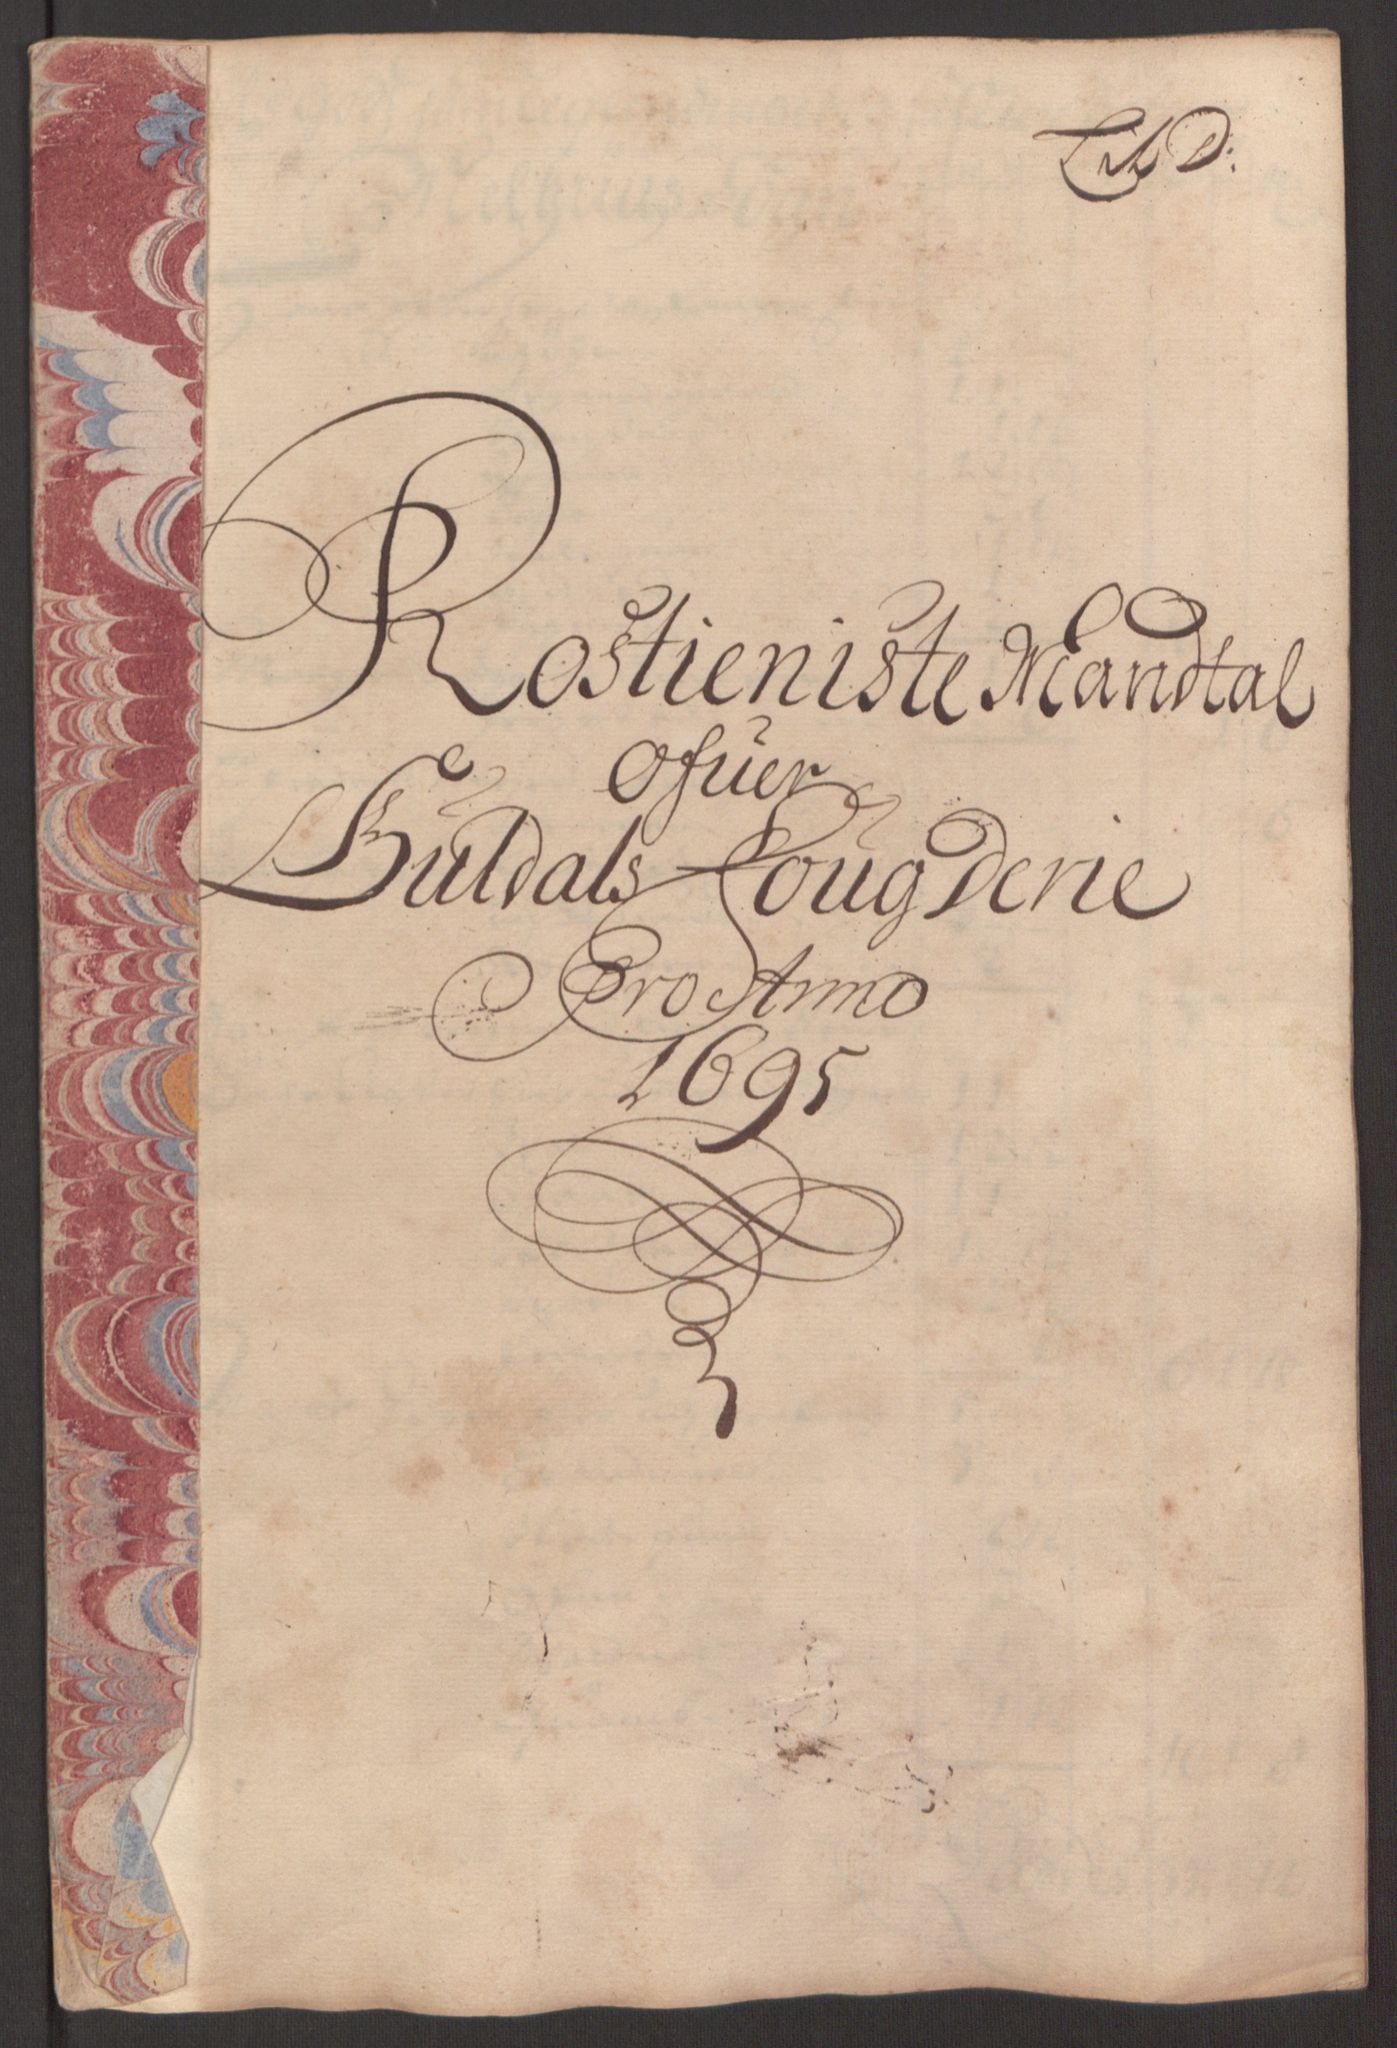 Lit D:
Rostieniste Mandtal
ofuer
Guldals Fougderie
Pro Anno
1695